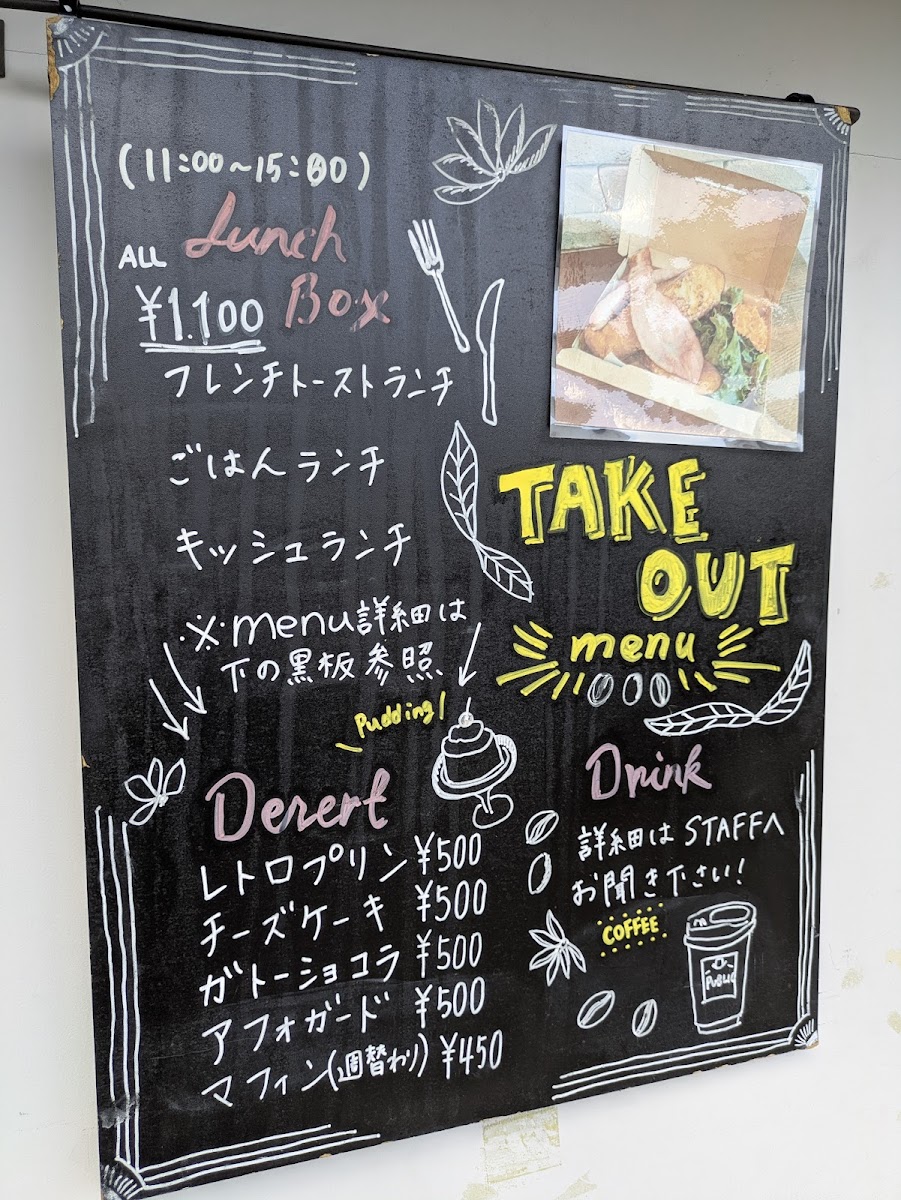 (11:00~15:00)
ALL Lunch
¥1.100 Box
フレンチトーストランチ
ごはんランチ
キッシュランチ
※menu詳細は
下の黒板参照
TAKE
OUT
menu
Pudding!
Desert
レトロプリン ¥500
チーズケーキ ¥500
ガトーショコラ ¥500
アフォガード ¥500
マフィン(週替わり) ¥450
Drink
詳細はSTAFFへ
お聞き下さい!
COFFEE
PUBLIC